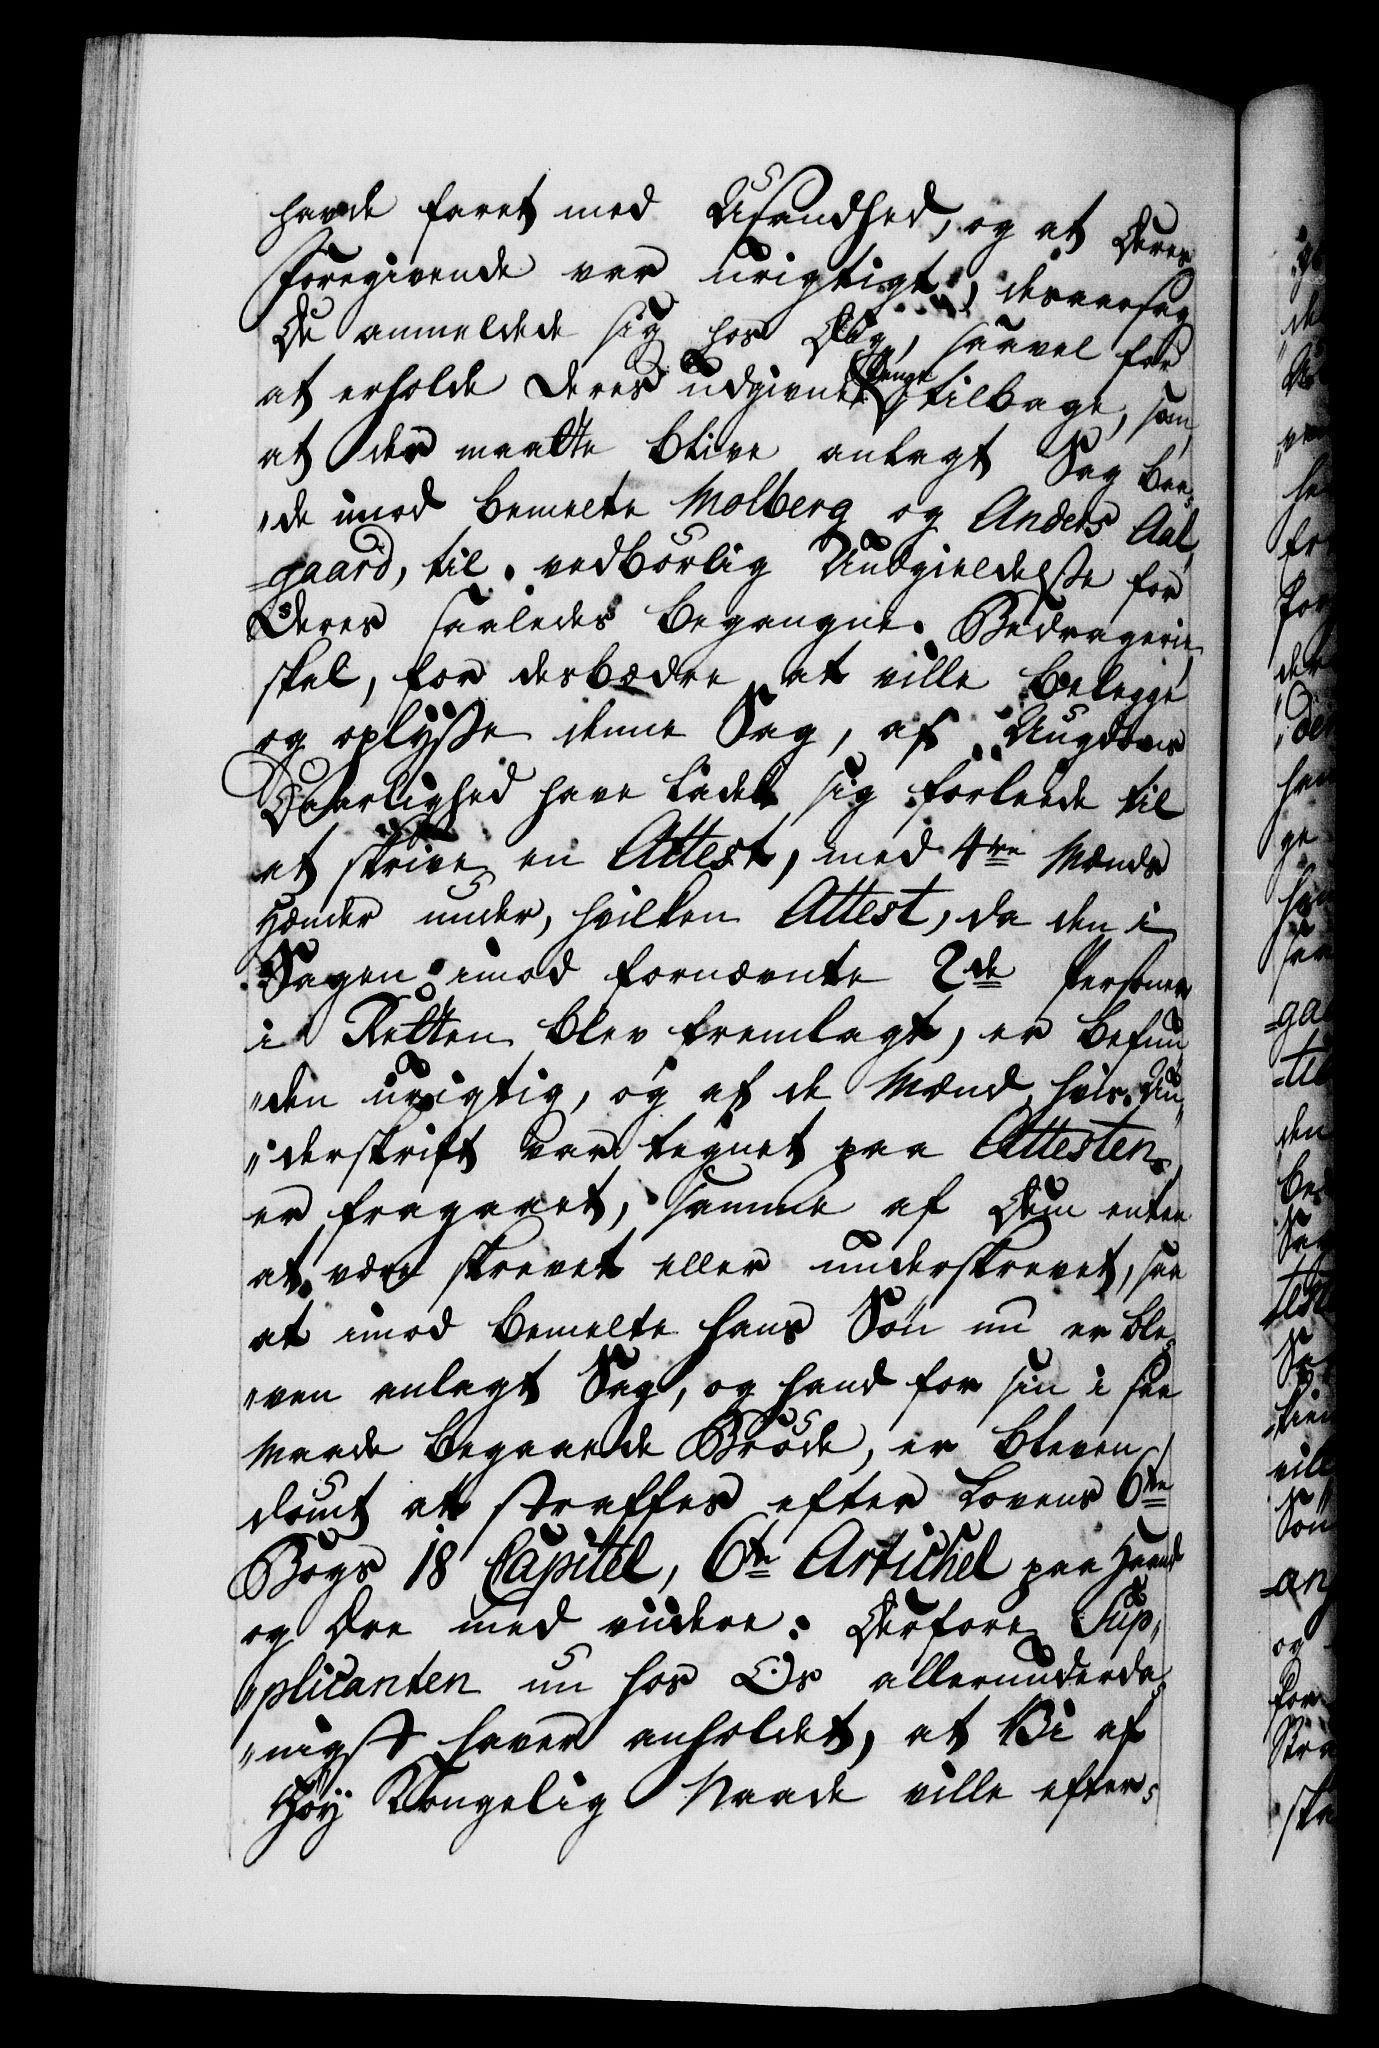 havde faret med Usandhed, og at Deres
Foregivende var urigtigt, desaarsag
De anmeldede sig hos Dig, saavel for
at erholde Deres udgivne Penge tilbage, som
at der maatte blive anlagt Sag bee¬
„de imod bemelte Molberg og Anders Aal¬
=gaard, til vedbørlig Undgieldelsse for
Deres saaledes begangne Bedragerie
skal, for desbædre at ville belegge
og oplysse denne Sag, af Ungdoms
Daarlighed have ladet sig forleede til
at skrive en Attest, med 4re Mænds
Hænder under, hvilken Attest, da den i
Sagen imod fornævnte 2de Personer
i Retten blev fremlagt, er befun¬
„den urigtig, og af de Mænd, hvis Un¬
„derskrift var tegnet paa Attesten,
er fragaaet, samme af Dem enten
at være skrevet eller underskrevet, saa
at imod bemelte hans Søn nu er ble¬
„ven anlagt Sag, og hand for sin i saa
Maade begaaede Brøde, er bleven
dømt at straffes efter Lovens 6te
Bogs 18 Capitel, 6te Artichel paa Haand
og Ære med viidere: Derfore Sup¬
„plicanten nu hos Os allerunderda¬
„nigst haver anholdet, at Vi af
Høy Kongelig Naade ville efter¬